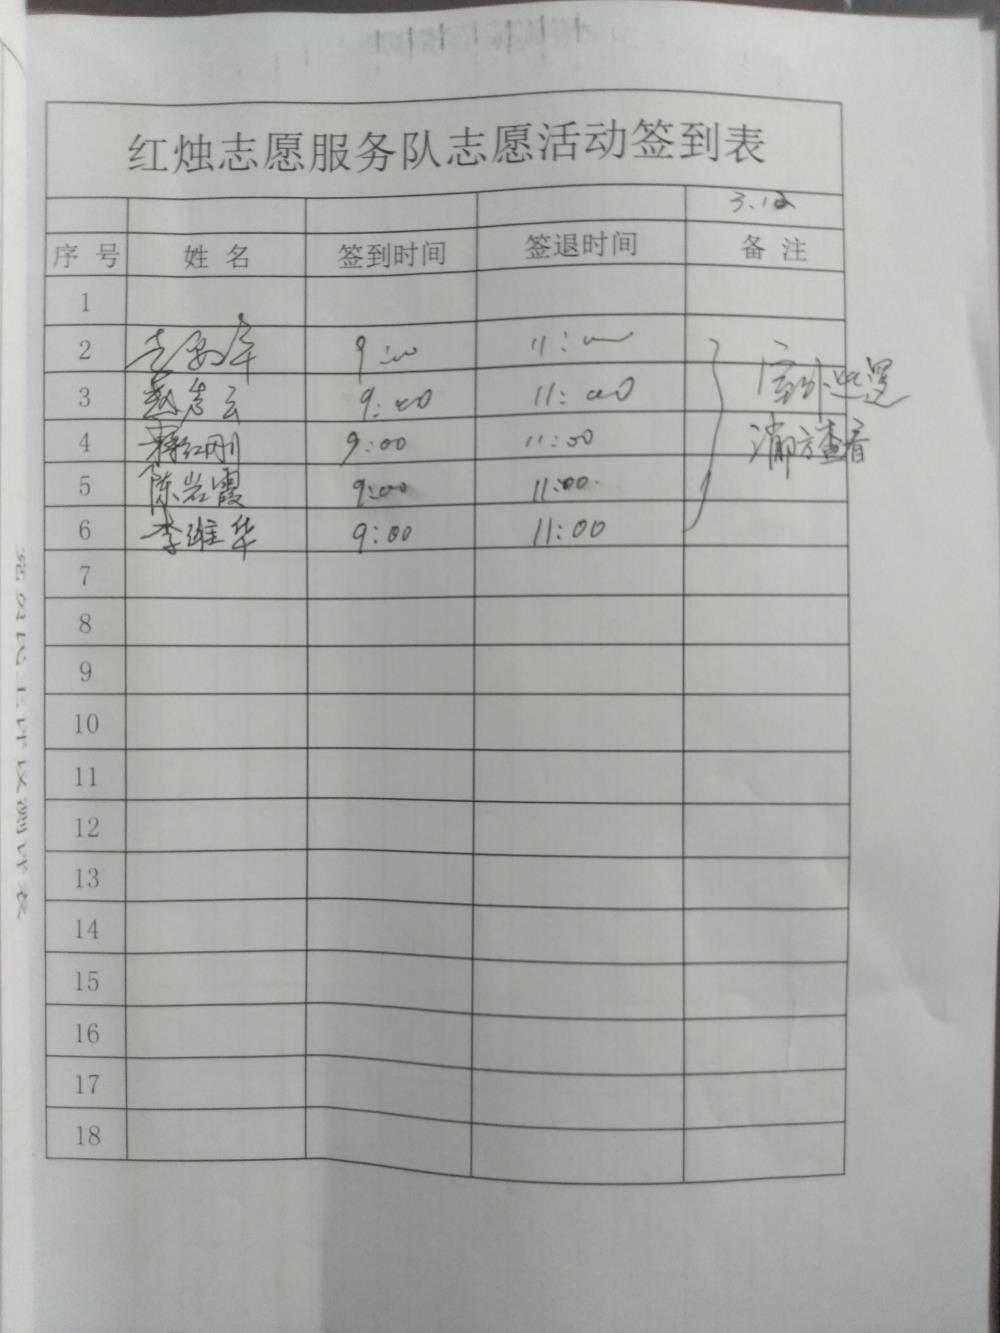 红烛志愿服务队志愿活动签到表
3.12
序号 姓名 签到时间 签退时间 备注
1
2 9:00 11:00
3 赵彦云 9:00 11:00 室外巡逻
4 红刚 9:00 11:00 消防查看
5 陈岩霞 9:00 11:00
6 李维华 9:00 11:00
7
8
9
10
11
12
13
14
15
16
17
18
党员民主评议测评表